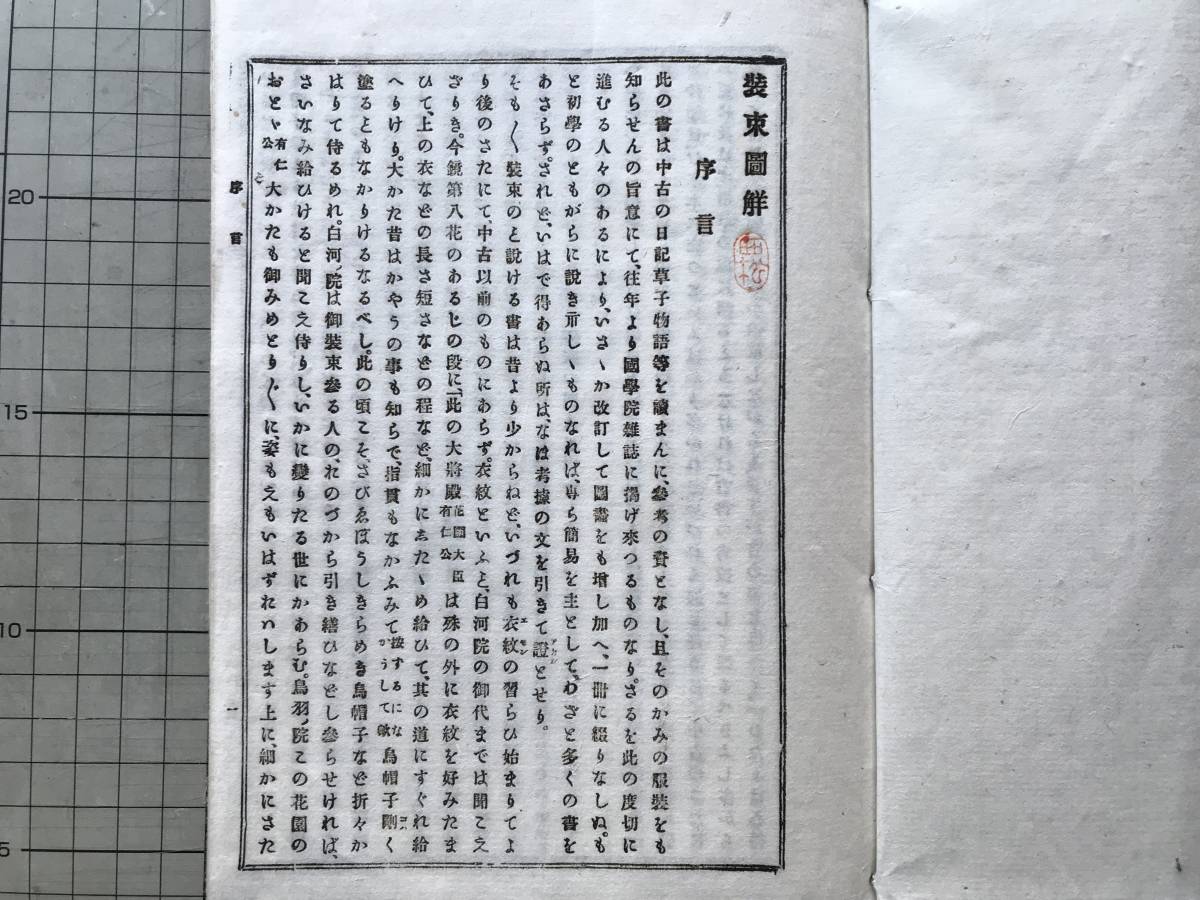 裝束圖解
序言
此の書は中古の日記草子物語等を讀まんに、參考の資となし、且そのかみの服裝をも
知らせんの旨意にて、往年より國學院雜誌に揭げ來つるものなり。さるを此の度切に
進むる人々のあるにより、いさゝか改訂して圖畵をも增し加へ、一冊に綴りなしぬ。も
と初學のともがらに說き示しゝものなれば、專ら簡易を主として、わざと多くの書を
あさらず。されど、いはで得あらぬ所は、なほ考據の文を引きて證アカシとせり。
そも〳〵裝束のと說ける書は昔より少からねど、いづれも衣紋エモンの習らひ始まりてよ
り後のさたにて、中古以前のものにあらず。衣紋といふと、白河院の御代までは聞こえ
ざりき。今鏡第八花のあるじの段に、「此の大將殿花園大臣有仁公は殊の外に衣紋を好みたま
ひて、上の衣などの長さ短さなどの程など、細かにしたゝめ給ひて、其の道にすぐれ給
へりけり。大かた昔はかやうの事も知らで、指貫もなかふみて按ずるになかうして歟烏帽子剛コハく
塗るともなかりけるなるべし。此の頃こそ、さびゑぼうしきらめき烏帽子など折々か
はりて侍るめれ。白河ノ院は御裝束參る人の、れのづから引き繕ひなどし參らせければ、
さいなみ給ひけると聞こえ侍りし、いかに變りたる世にかあらむ。鳥羽ノ院この花園の
おとゞ有仁公大かたも御みめとり〴〵に、姿もえもいはずれいします上に、細かにさた
序言
一
20
15
10
5